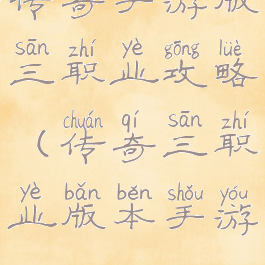 传奇手游版
sān zhí yè gōng lüè
三职业攻略
chuán qí sān zhí
（传奇三职
yè bǎn běn shǒu yóu
业版本手游